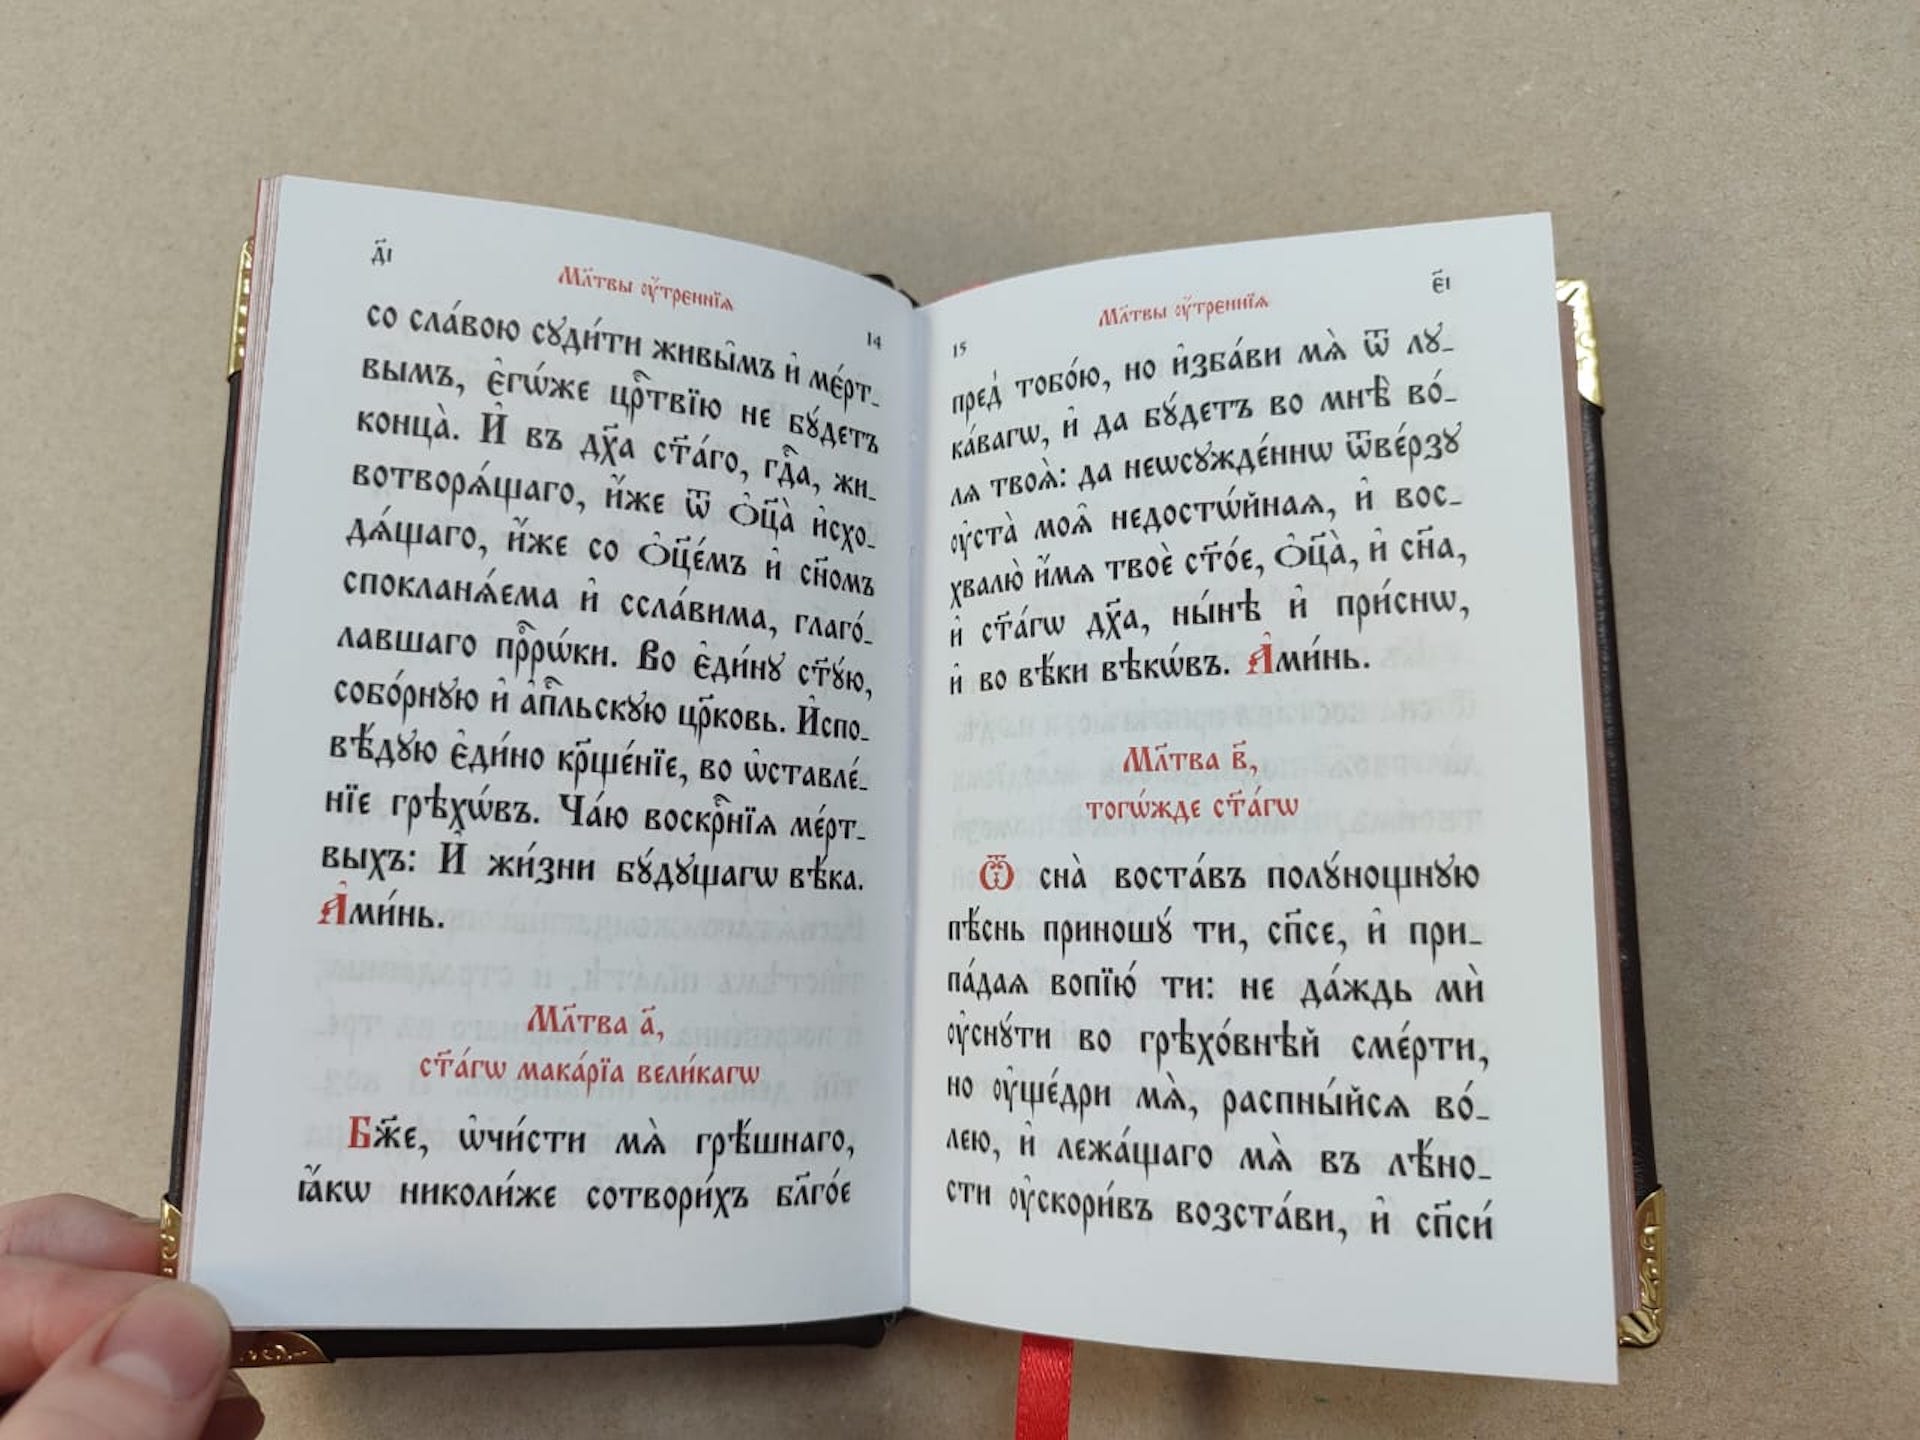 д҃і
Мл҃твы ᲂу҆́трєннїѧ
14
со сла́вою сꙋди́ти живы̑мъ и҆ мє́рт_
вымъ, є҆гѡ́жє црⷭ҇твїю нє бꙋ́дєтъ
конца̀. И҆ въ дх҃а ст҃а́го, гдⷭ҇а, жи_
вотворѧ́щаго, и҆́жє ѿ ѻ҆ц҃а̀ и҆схо_
дѧ́щаго, и҆́жє со ѻ҆ц҃є́мъ и҆ сн҃омъ
спокланѧ́єма и҆ ссла́вима, глаго́_
лавшаго прⷪ҇рѡ́ки. Во є҆ди́нꙋ ст҃ꙋ́ю,
собо́рнꙋю и҆ а҆пⷭ҇льскꙋю цр҃ковь. И҆спо_
вѣ́дꙋю є҆ди́но кр҃щє́нїє, во ѡ҆ставлє́_
нїє грѣхѡ́въ. Ча́ю воскрⷭ҇нїѧ мє́рт_
выхъ: И҆ жи́зни бꙋ́дꙋщагѡ вѣ́ка.
А҆ми́нь.
Мл҃тва а҃,
ст҃а́гѡ мака́рїа вєли́кагѡ
Бж҃є, ѡ҆чи́сти мѧ̀ грѣ́шнаго,
ꙗ҆́кѡ николи́жє сотвори́хъ бл҃го́є
є҃і
Мл҃твы ᲂу҆́трєннїѧ
15
прєд̾ тобо́ю, но и҆зба́ви мѧ̀ ѿ лꙋ_
ка́вагѡ, и҆ да бꙋ́дєтъ во мнѣ̀ во́_
лѧ твоѧ̀: да нєѡсꙋждє́ннѡ ѿвє́рзꙋ
ᲂу҆ста̀ моѧ̑ нєдостѡ́йнаѧ, и҆ вос_
хвалю̀ и҆́мѧ твоѐ ст҃о́є, ѻ҆ц҃а̀, и҆ сн҃а,
и҆ ст҃а́гѡ дх҃а, ны́нѣ и҆ при́снѡ,
и҆ во вѣ́ки вѣкѡ́въ. А҆ми́нь.
Мл҃тва в҃,
тогѡ́ждє ст҃а́гѡ
Ѿ сна̀ воста́въ полꙋ́нощнꙋю
пѣ́снь приношꙋ́ ти, сп҃сє, и҆ при_
па́даѧ вопїю́ ти: нє да́ждь мѝ
ᲂу҆снꙋ́ти во грѣхо́внѣй смє́рти,
но ᲂу҆щє́дри мѧ̀, распны́йсѧ во́_
лєю, и҆ лєжа́щаго мѧ̀ въ лѣ́но_
сти ᲂу҆скори́въ возста́ви, и҆ сп҃си́